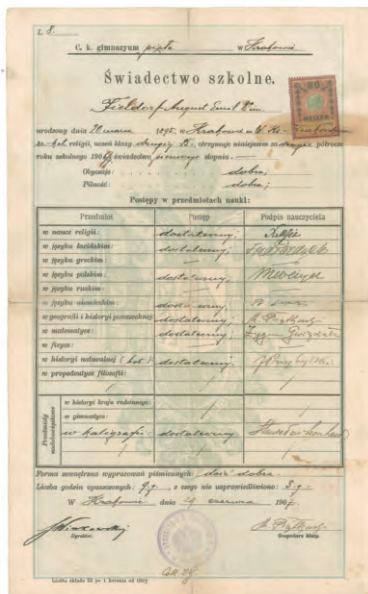 L. 8.
C. k. gimnazyum piąte w Krakowie
Świadectwo szkolne.
Fieldorf August Emil
80
HELLER
urodzony dnia 20 marca 1895, w Krakowie w W. Ks. Krakowskiem
religii, uczeń klasy drugiej B. otrzymuje niniejszem za drugie półrocze
roku szkolnego 190 świadectwo pierwszego stopnia.
Obyczaje: dobre
Pilność: dobra;
Postępy w przedmiotach nauki:
Przedmiot Postęp Podpis nauczyciela
w nauce religii: dostateczny;
w języku łacińskim: dostateczny;
w języku greckim:
w języku polskim: dostateczny;
w języku ruskim:
w języku niemieckim: dostateczny;
w geografii i historyi powszechnej: dostateczny;
w matematyce: dostateczny;
w fizyce:
w historyi naturalnej (bot.) dostateczny,
w propedeutyce filozofii:
Przedmioty nadobowiązkowe
w historyi kraju rodzinnego:
w gimnastyce:
w kaligrafii: dostateczny
Forma zewnętrzna wypracowań piśmiennych: dość dobra
Liczba godzin opuszczonych: 9, z czego nie usprawiedliwiono: 3
W Krakowie dnia 29 czerwca 190
Dyrektor. Gospodarz klasy.